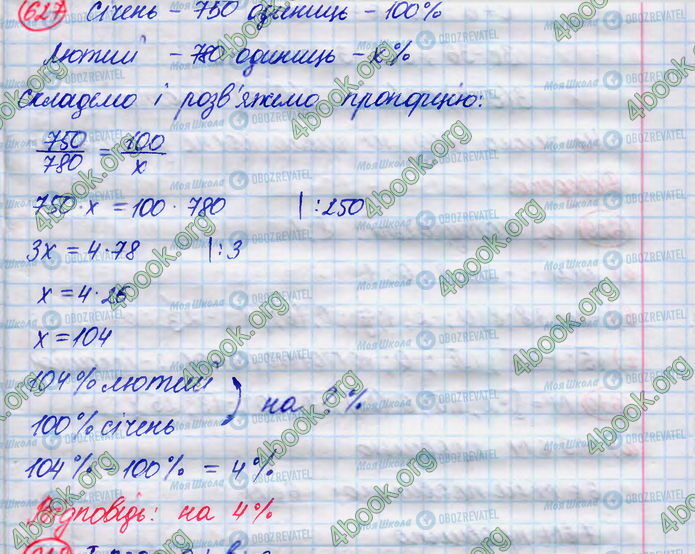 627 Січень – 750 одиниць – 100%
Лютий – 780 одиниць – x%
Складемо і розв'яжемо пропорцію:
750/780 = 100/x
750·x = 100·780 |:250
3x = 4·78 |:3
x = 4·26
x = 104
104% лютий
100% січень
на ?%
104% - 100% = 4%
Відповідь: на 4%